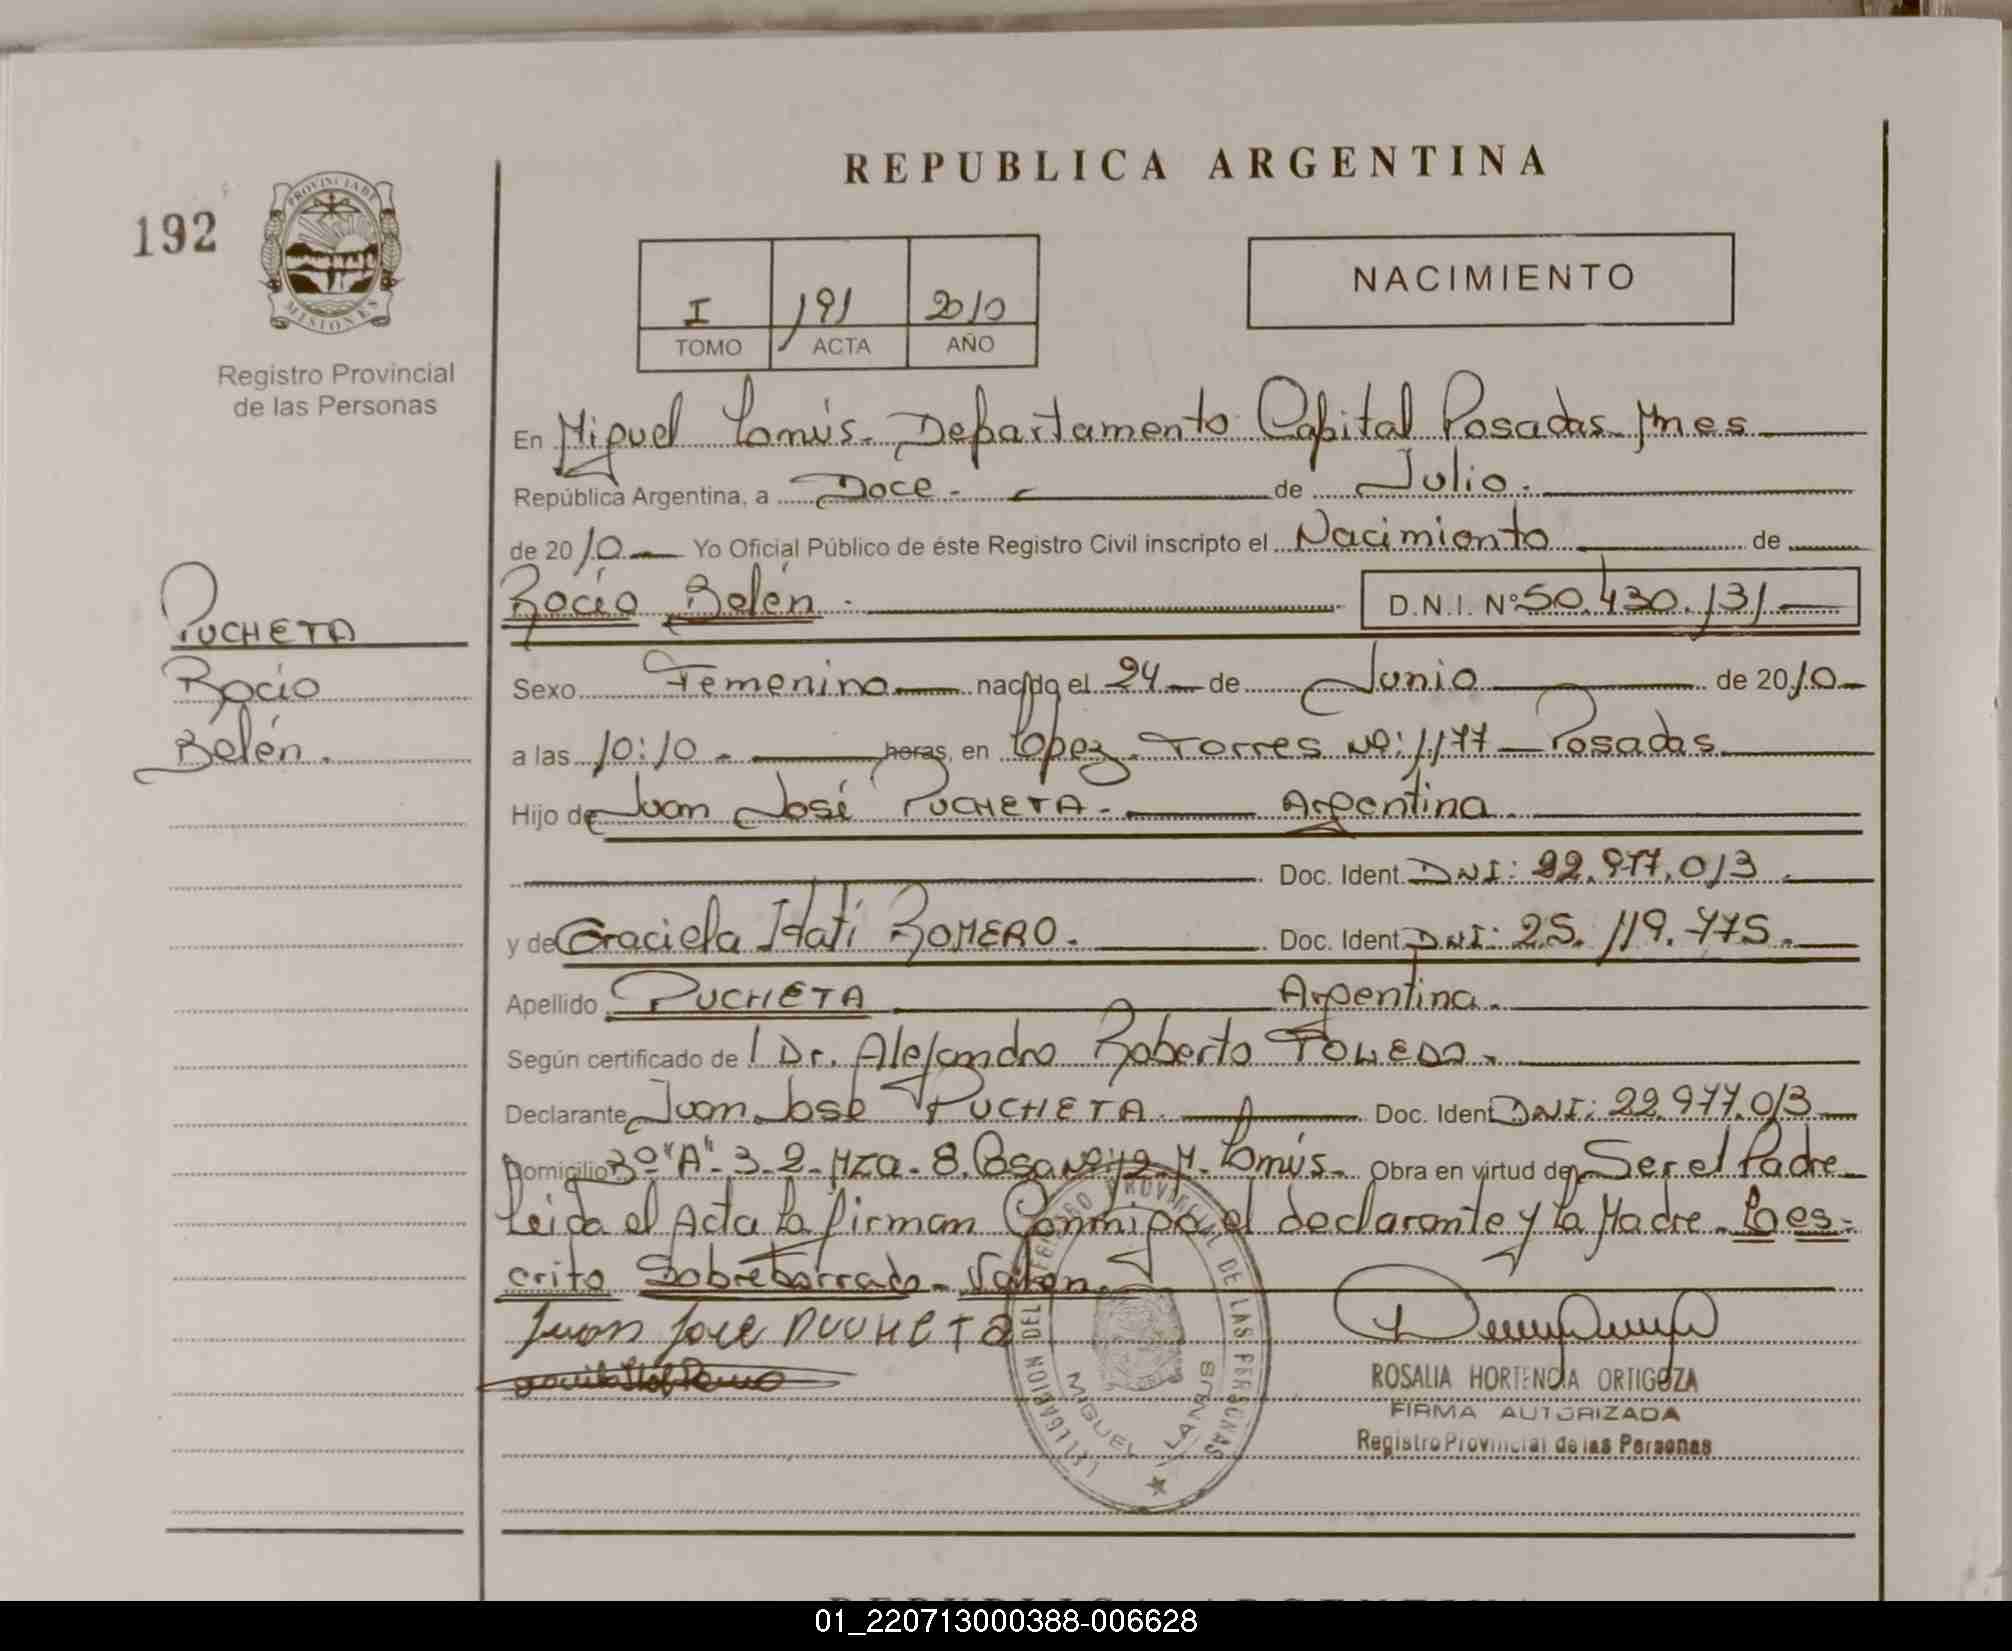 REPUBLICA ARGENTINA
192
PROVINCIA DE
MISIONES
Registro Provincial
de las Personas
I 191 2010
TOMO ACTA AÑO
NACIMIENTO
En Miguel Lanús. Departamento Capital Posadas Mnes
República Argentina, a Doce. de Julio.
de 2010 Yo Oficial Público de éste Registro Civil inscripto el Nacimiento de
Rocío Belén. D.N.I. N° 50.430.131
PUCHETA
Rocío
Belén.
Sexo Femenino nacido el 24 de Junio de 2010
a las 10:10. horas, en López Torres Nº: 1177 Posadas
Hijo de Juan José PUCHETA. Argentina.
Doc. Ident. DNI: 22.977.013.
y de Graciela Itatí ROMERO. Doc. Ident. DNI: 25.119.775.
Apellido PUCHETA Argentina.
Según certificado de l Dr. Alejandro Roberto TOLEDO.
Declarante Juan José PUCHETA. Doc. Ident DNI: 22.977.013
Domicilio 3º "A" - 3-2- Mza. 8. Casa Nº M. Lanús. Obra en virtud de Ser el Padre
Leida el Acta la firman Conmigo el declarante y la Madre. Lo es-
crito Sobreborrado - Valen.
Juan Jose PUCHETA
DELEGACION DEL REGISTRO PROVINCIAL DE LAS PERSONAS
MIGUEL LANUS
ROSALIA HORTENCIA ORTIGOZA
FIRMA AUTORIZADA
Registro Provincial de las Personas
REPUBLICA ARGENTINA
01_220713000388-006628